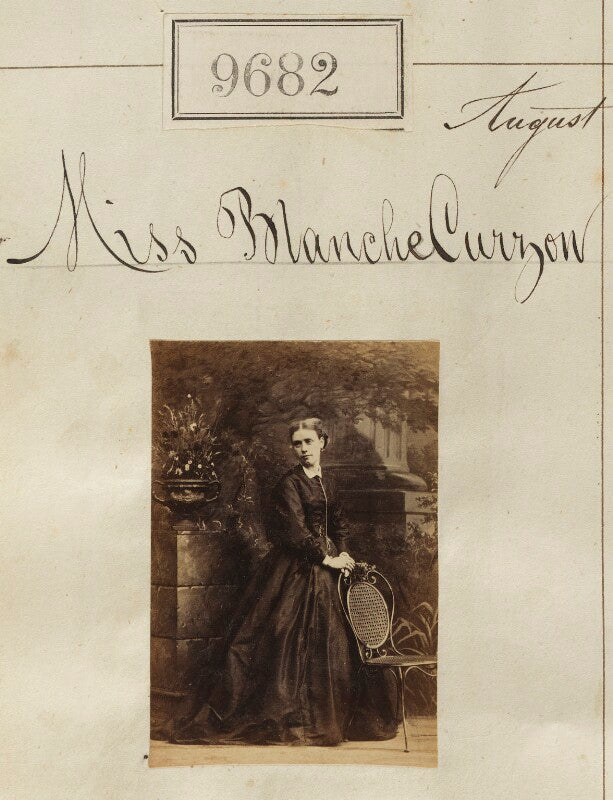 9682
August
Miss Blanche Curzon